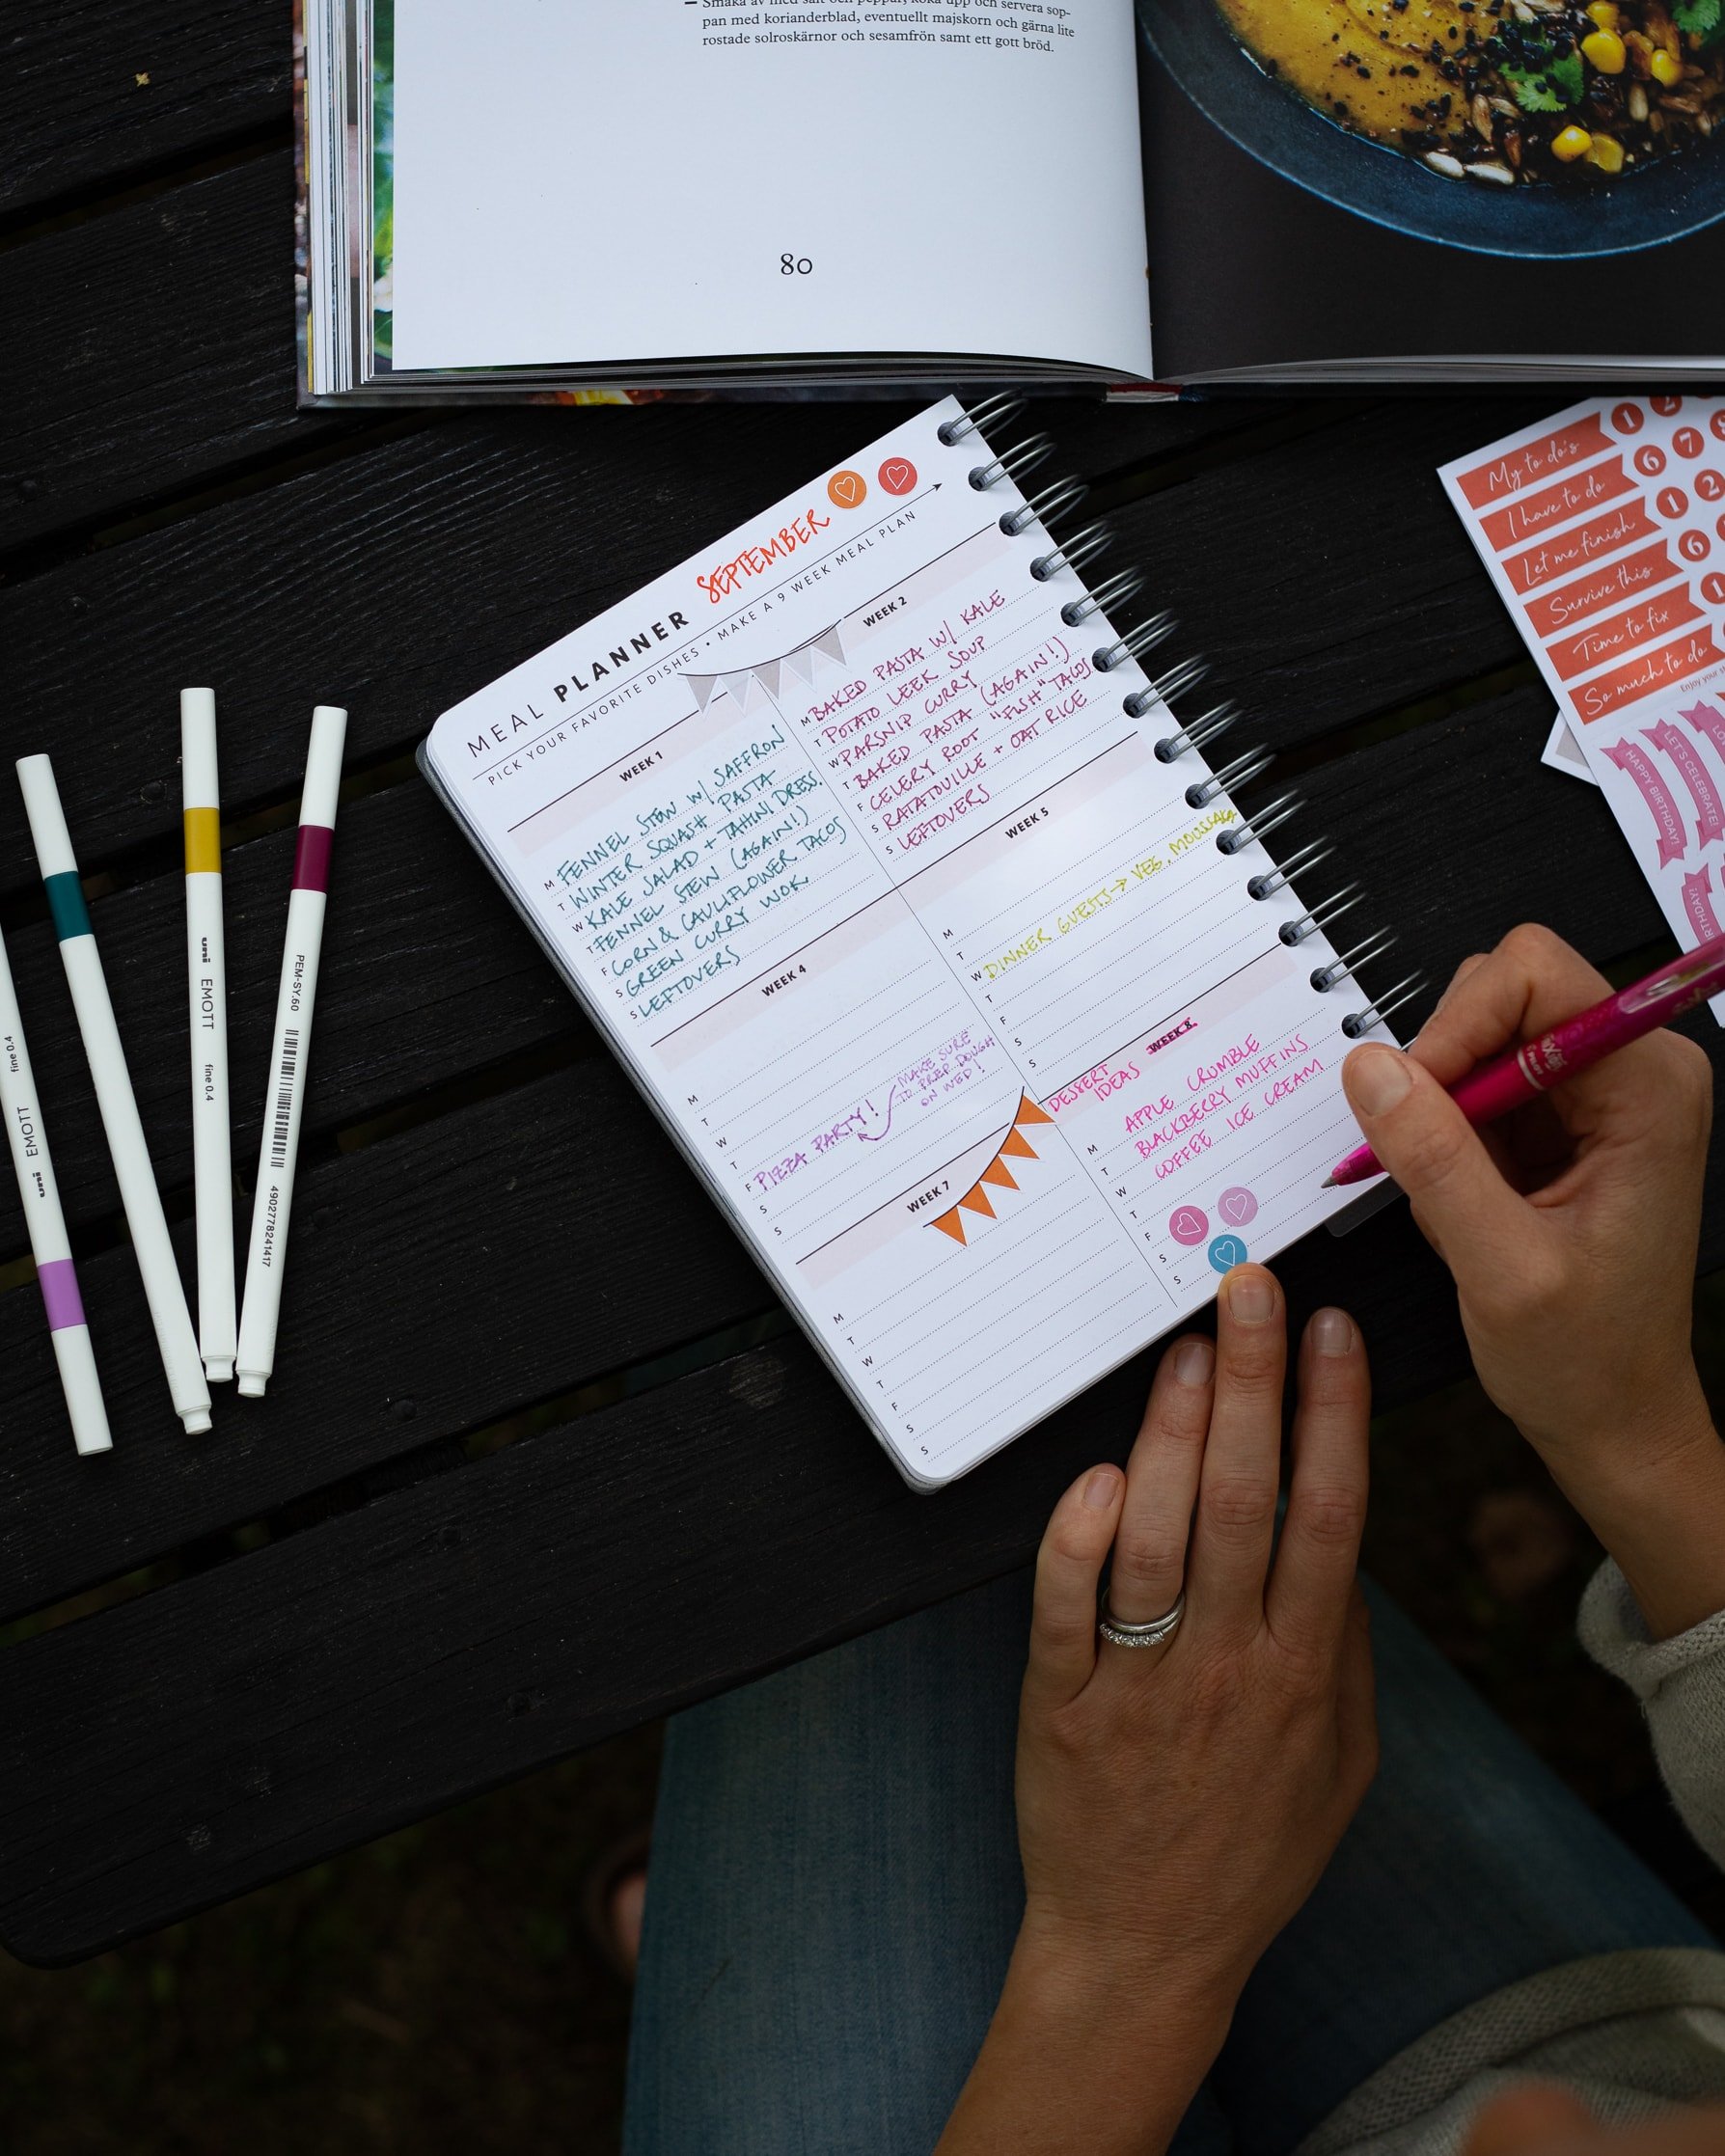 Smaka av med salt och peppar, koka upp och servera sop-
pan med korianderblad, eventuellt majskorn och gärna lite
rostade solroskärnor och sesamfrön samt ett gott bröd.
80
MEAL PLANNER SEPTEMBER
PICK YOUR FAVORITE DISHES • MAKE A 9 WEEK MEAL PLAN
WEEK 1
M FENNEL STEW W/ SAFFRON
T WINTER SQUASH PASTA
W KALE SALAD + TAHINI DRESS.
T FENNEL STEW (AGAIN!)
F CORN & CAULIFLOWER TACOS
S GREEN CURRY WOK
S LEFTOVERS
WEEK 2
M BAKED PASTA W/ KALE
T POTATO LEEK SOUP
W PARSNIP CURRY
T BAKED PASTA (AGAIN!)
F CELERY ROOT "FISH" TACOS
S RATATOUILLE + OAT RICE
S LEFTOVERS
WEEK 4
M
T
W
T
F PIZZA PARTY!
S
S
MAKE SURE
TO PREP DOUGH
ON WED!
WEEK 5
M
T
W DINNER GUESTS → VEG. MOUSSAKA
T
F
S
S
WEEK 7
M
T
W
T
F
S
S
WEEK 8
DESSERT
IDEAS
APPLE CRUMBLE
M BLACKBERRY MUFFINS
T COFFEE ICE CREAM
W
T
F
S
S
My to do's
I have to do
Let me finish
Survive this
Time to fix
So much to do
1 2
6 7 8
1 2
6
1
Enjoy your
HAPPY BIRTHDAY!
LET'S CELEBRATE!
fine 0.4
EMOTT
uni
uni
EMOTT
fine 0.4
PEM-SY.60
4902778241417
PILOT